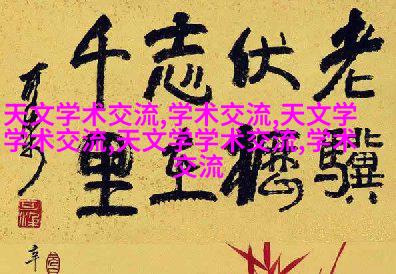 老驥
伏櫪
志在
千里
天文学术交流,学术交流,天文学
学术交流,天文学学术交流,学术
交流
辛